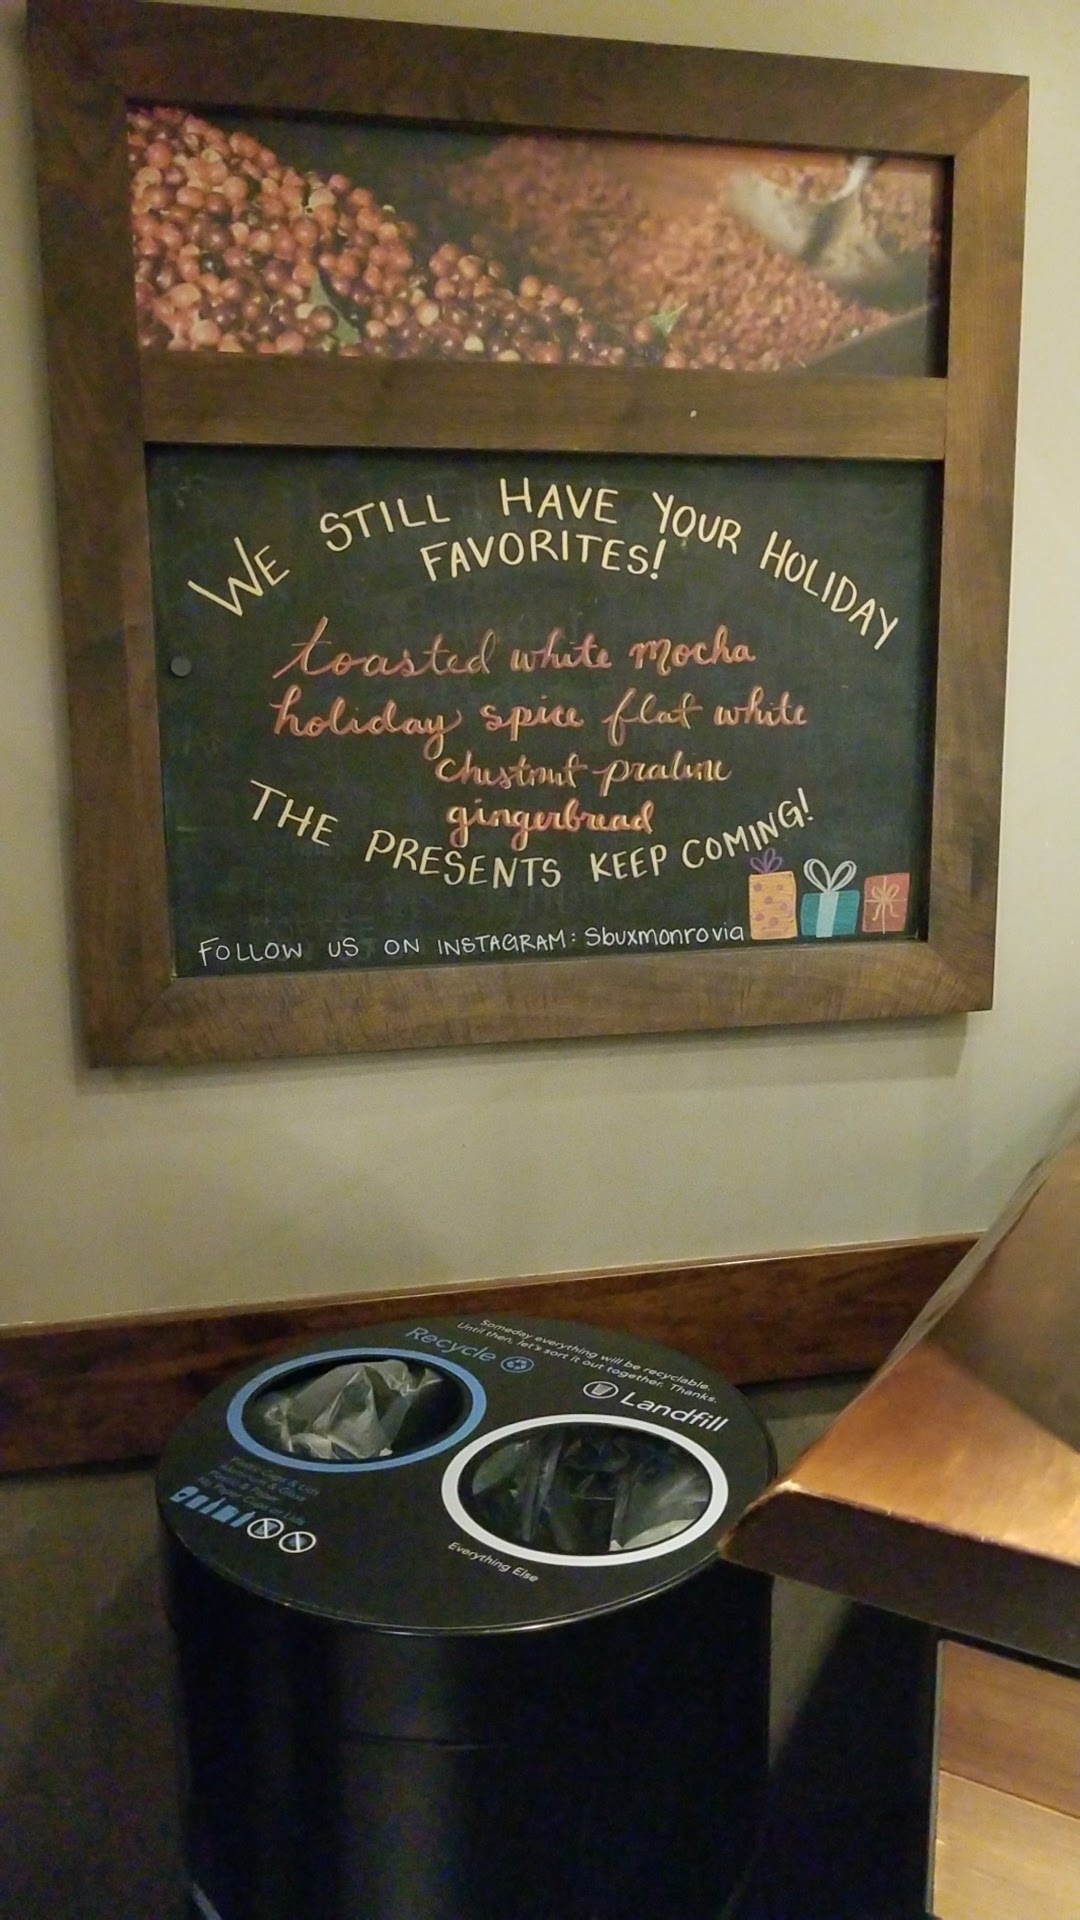 WE STILL HAVE YOUR HOLIDAY
FAVORITES!
toasted white mocha
holiday spice flat white
chestnut praline
gingerbread
THE PRESENTS KEEP COMING!
FOLLOW US ON INSTAGRAM: Sbuxmonrovia
Someday everything will be recyclable.
Until then, let's sort it out together. Thanks.
Recycle
Landfill
Everything Else